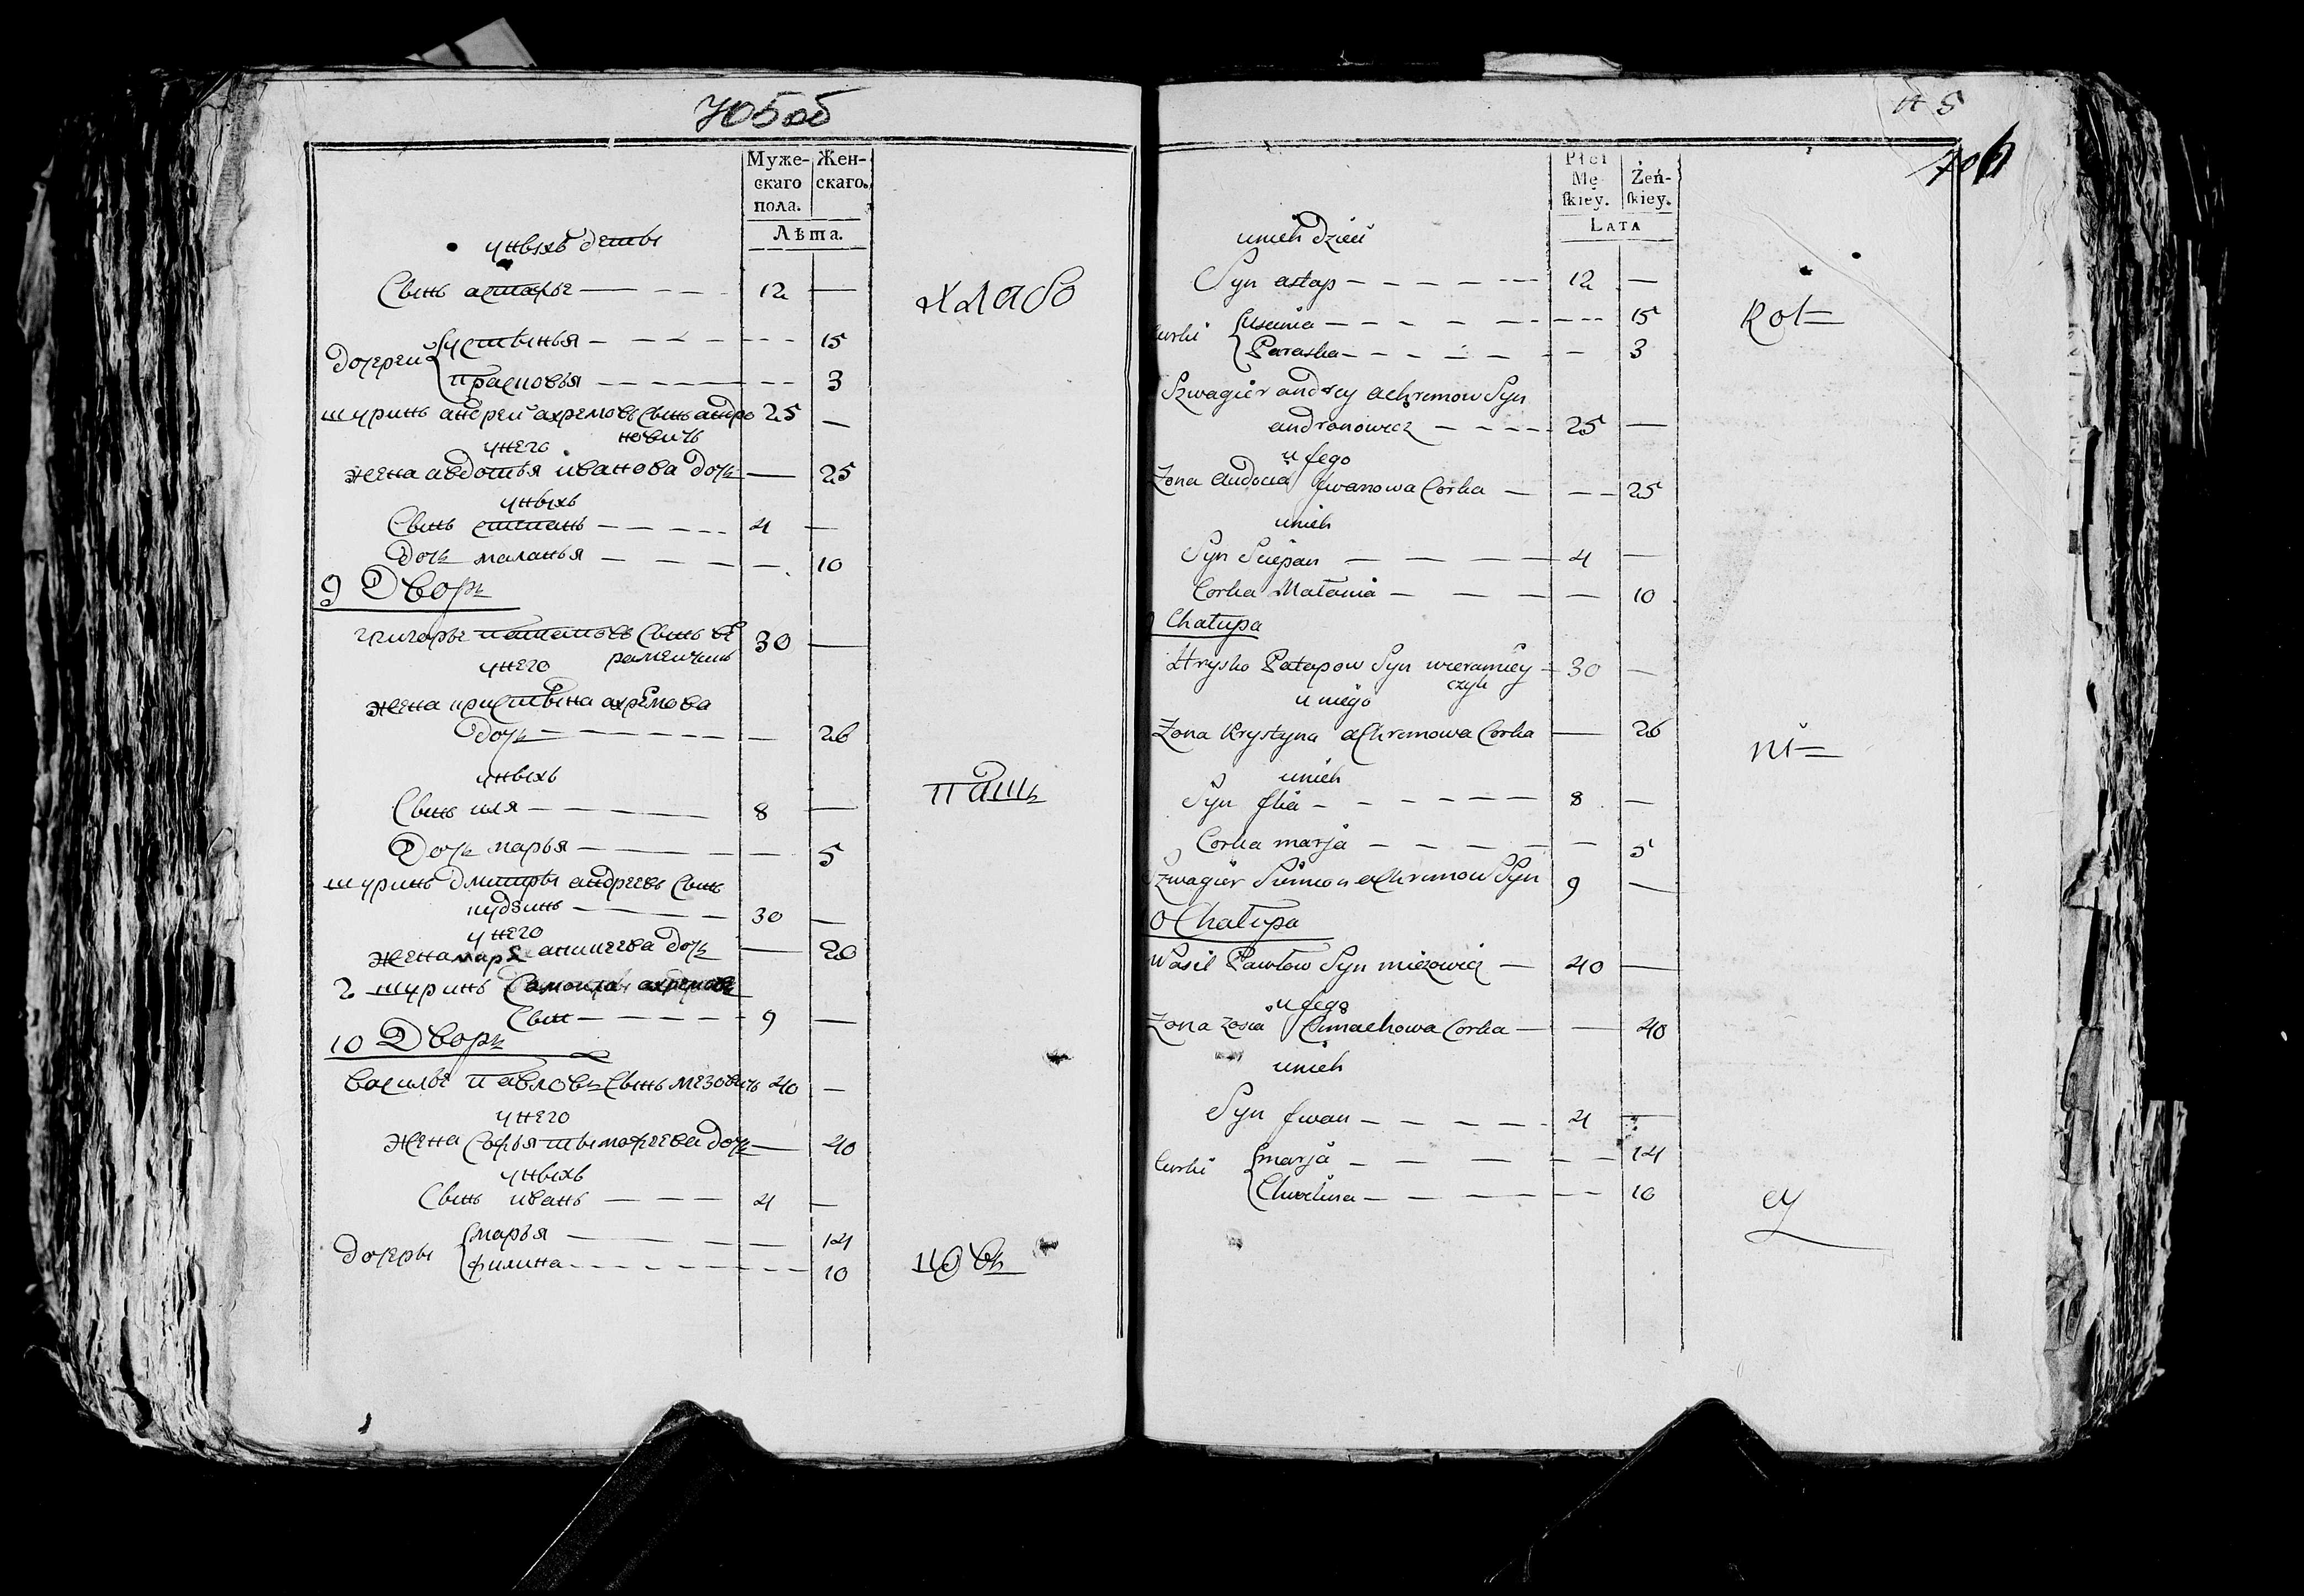 705 об
Муже- Жен-
скаго скаго.
пола.
Лѣта.
у ныхъ дети
Сынъ астапъ 12 —
дочереи устинья 15
прасковья 3
шуринъ андреи ахремовъ сынъ андро 25 —
новичь
у него
жена авдотья иванова дочь — 25
у ныхъ
Сынъ степанъ 4 —
Дочь маланья — 10
9 Дворъ
григоры патаповъ сынъ ве 30 —
ремейчикъ
у него
жена кристына ахремова
дочь — 26
у ныхъ
Сынъ иля 8 —
Дочь марья — 5
шуринъ дмитры андреевъ сынъ
30 —
у него
жена марья дочь — 20
2 шуринъ
Сын 9 —
10 Дворъ
василы павловъ сынъ мезовичь 40 —
у него
жена софья тымофеева дочь — 40
у ныхъ
Сынъ иванъ 4 —
дочеры марья — 14
филина 10
Płci
Mę- Żeń-
skiey. skiey.
LATA
N 5
706
u nich dzieci
Syn astap 12 —
Curki Uscinia 15
Paraska — 3
Szwagier andrey achremow Syn
andronowicz 25 —
u jego
Zona audocia Jwanowa Corka — 25
u nich
Syn Sciepan 4 —
Corka Małania — 10
Chałupa
Hrysko Patapow Syn wieramiey 30 —
czyk
u niego
Zona Krystyna achremowa Corka — 26
u nich
Syn Jlia 8 —
Corka marja — 5
Szwagier Siemion achremow Syn 9 —
0 Chałupa
Wasil Pawłow Syn miezowicz 40 —
u jego
Zona Zosia Cimachowa Corka — 40
u nich
Syn Jwan 4 —
Curki marja — 14
Chwelina — 10